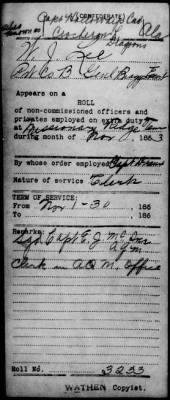 (CONFEDERATE)
Ala
W. J. Lee
Co B. Genl Bragg Escort
Appears on a
ROLL
of non-commissioned officers and
privates employed on extra duty
at Missionary Ridge Tenn
during month of Nov, 1863
By whose order employed
Nature of service Clerk
TERM OF SERVICE:
From Nov 1-30, 186
To, 186
Remarks:
Sgd Capt E. J.
A.Q.M.
Clerk in A.Q.M. Office
Roll No. 3233
WATHEN Copyist.